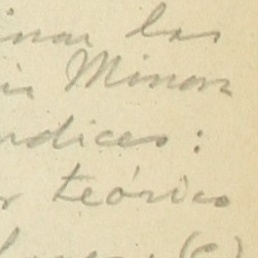 inar las
is Minon
ndices:
r teórico
(c)